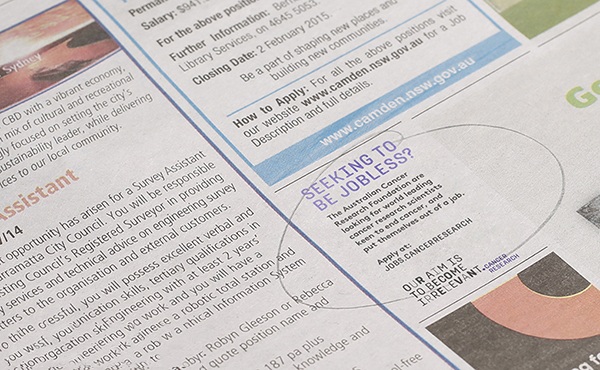 Sydney
CBD with a vibrant economy,
mix of cultural and recreational
focused on setting the city's
sustainability leader, while delivering
services to our local community.
Assistant
/14
opportunity has arisen for a Survey Assistant
Parramatta City Council. You will be responsible
Council's Registered Surveyor in providing
services and technical advice on engineering survey
to the organisation and external customers.
you will possess excellent verbal and
skills, tertiary qualifications in
Engineering with at least 2 years'
work and you will have a
a robotic total station and
Information System
Robyn Gleeson or Rebecca
quote position name and
187 pa plus
knowledge and
Salary: $941
For the above position
Further Information:
Library Services, on 4645 5053.
Closing Date: 2 February 2015.
Be a part of shaping new places and
building new communities.
How to Apply: For all the above positions visit
our website www.camden.nsw.gov.au for a Job
Description and full details.
www.camden.nsw.gov.au
SEEKING TO
BE JOBLESS?
The Australian Cancer
Research Foundation are
looking for world leading
cancer research scientists
keen to end cancer, and
put themselves out of a job.
Apply at:
JOBS.CANCERRESEARCH
OUR AIM IS
TO BECOME
IRRELEVANT.
CANCER
RESEARCH